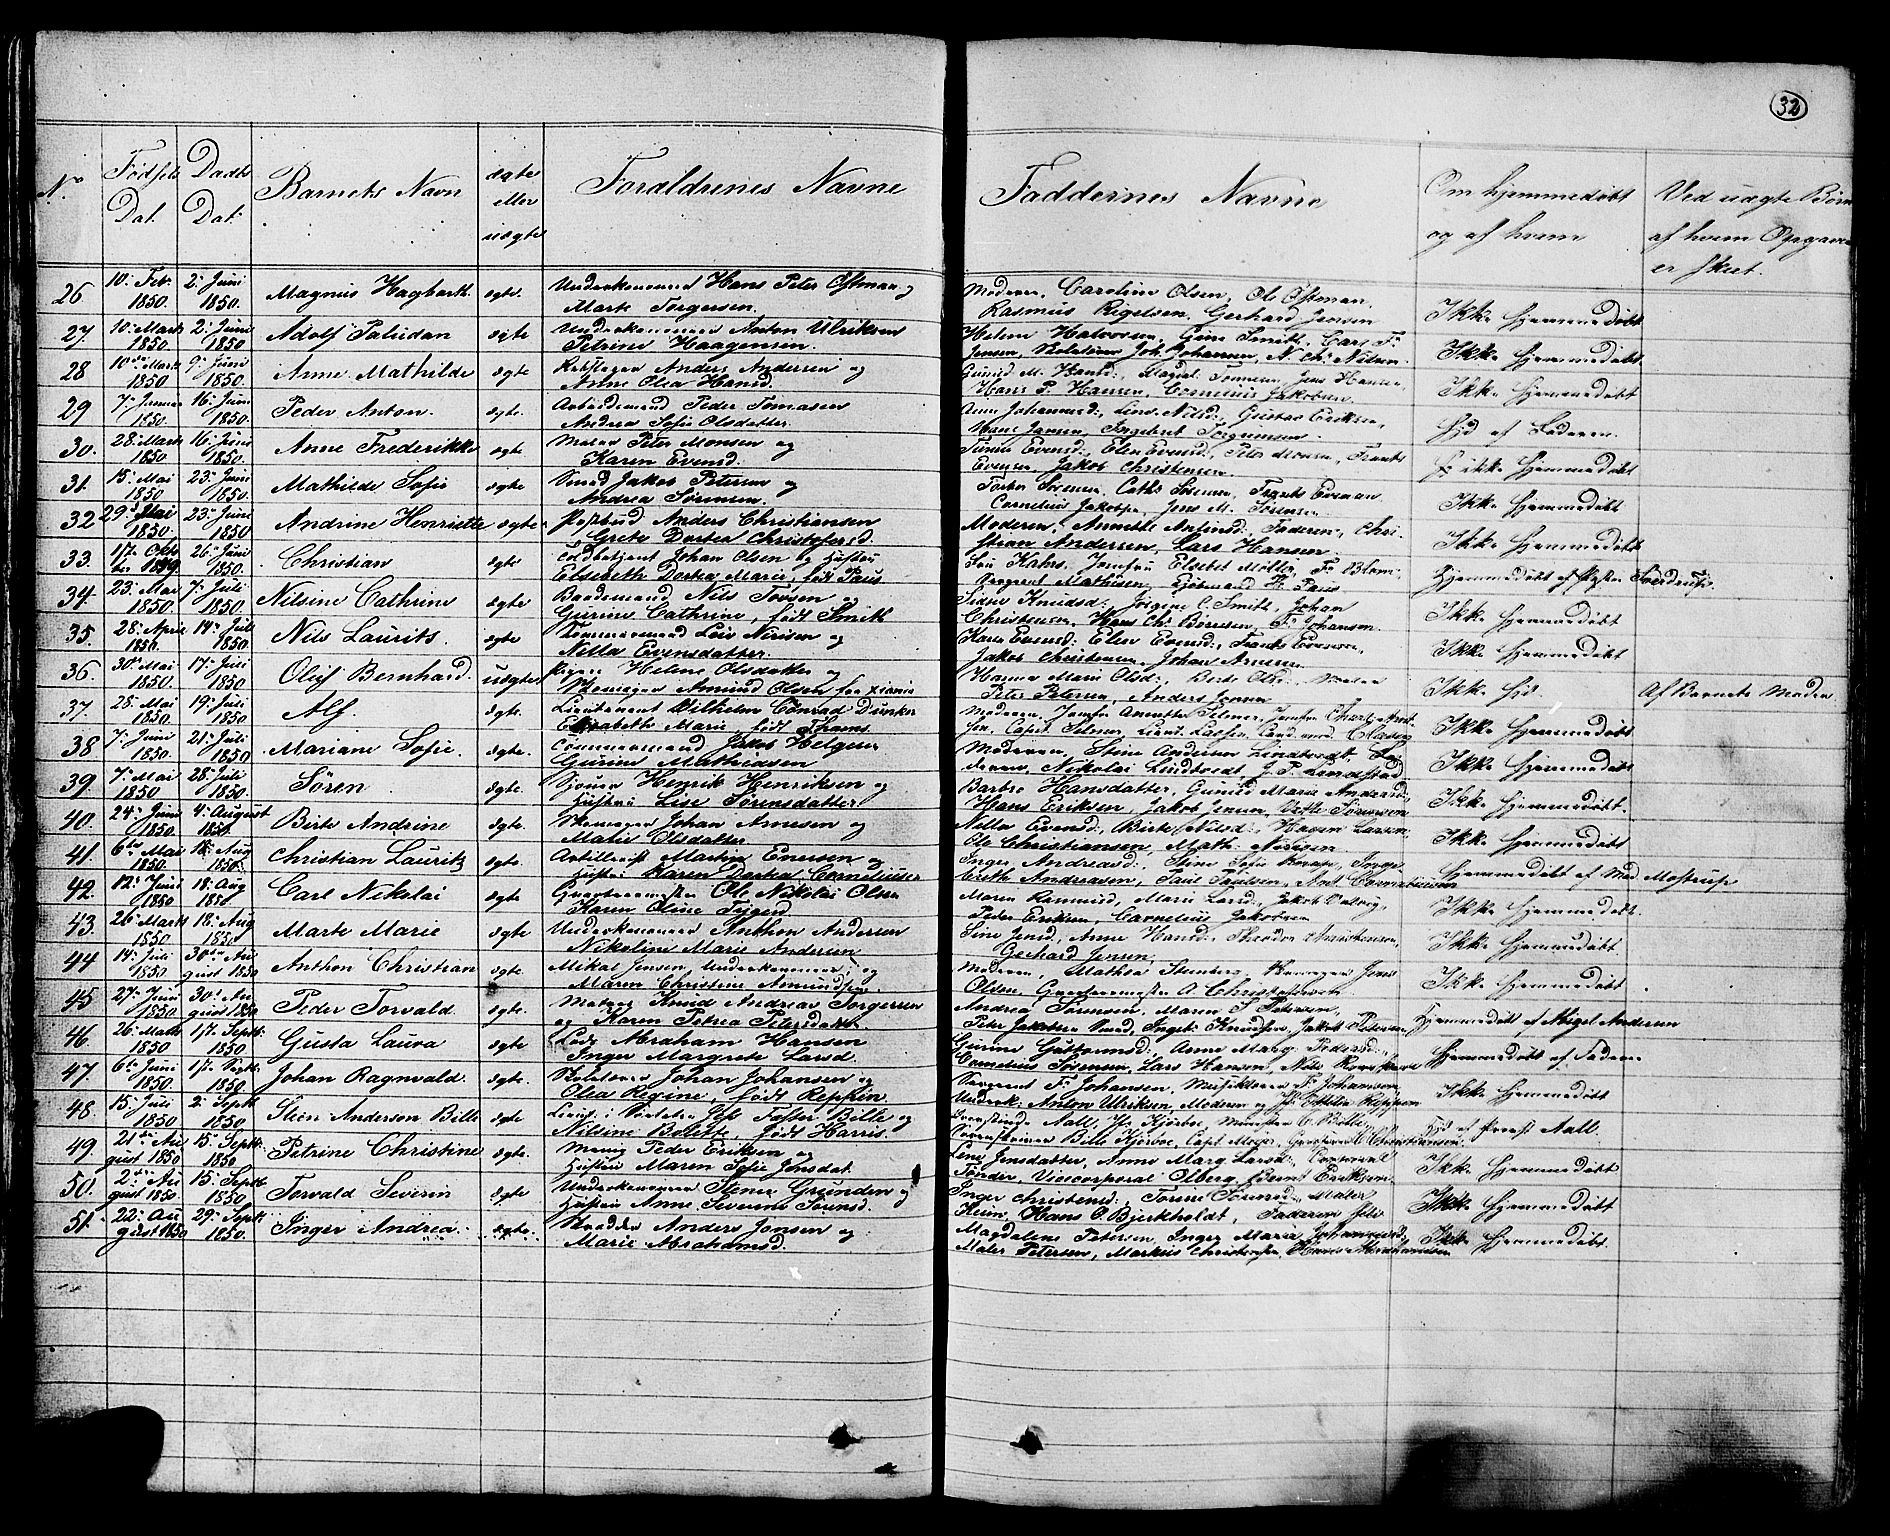 32
No Fødsels Dat. Daabs Dat: Barnets Navn ægte eller uægte Forældrenes Navne Faddernes Navne Om hjemmedøbt og af hvem Ved uægte Børn af hvem Opgaven er skeet.
26. 10. Feb. 1850. 2. Juni 1850. Magnus Hagbarth. ægte. Underkanoneer Hans Peter Østman og
Marte Torgersen.
Moderen, Caroline Olsen, Ole Østman,
Rasmus Rigelsen, Gerhard Jensen
Ikke hjemmedøbt
27. 10. Marts 1850. 2. Juni 1850 Adolf Paludan ægte Underkanoneer Anton Ulriksen
Petrine Haagensen.
Helene Halvorsen, Gine Smith, Carl Fr.
Jensen, Joh. Johansen, N. Chr. Nilsen.
Ikke hjemmedøbt
28 10de Marts 1850 9. Juni 1850. Anne Mathilde ægte Anders Andersen og
Anne Olea Hansd.
Gunild M. Hansd., Tomesen, Jens Hansen,
Hans P. Hansen, Cornelius Jakobsen
Ikke hjemmedøbt
29 7. Januar 1850. 16. Juni 1850. Peder Anton. ægte. Arbeidsmand Peder Tomasen
Andrea Sofie Olsdatter
Ane Johannesd:, Lins. Nilsd:, Gustav Eriksen,
Hans Jensen, Ingebret Torgrimsen.
Hjd af Læderen.
30. 28. Marts 1850 16. Juni 1850. Anne Frederikke ægte Matros Peter Monsen og
Karen Evensd.
Tunne Evensd:, Elen Evensd:, Peter Monsen, Frants
Evensen, Jakob Christensen
ikke hjemmedøbt
31. 15. Mai 1850 23. Juni 1850. Mathilde Sofie ægte Smed Jakob Petersen og
Andrea Sørensen.
Torber Sørensen, Cathr. Sørensen, Frants Evensen
Cornelius Jakobsen, Jens M. Sørensen
Ikke hjemmedøbt
32 29. Mai 1850. 23. Juni 1850 Andrine Henriette ægte Postbud Anders Christiansen
Grete Dortea Christofersd.
Moderen, Annethe Aslaksd:, Faderen, Chri-
stian Andersen, Lars Hansen.
Ikke hjemmedøbt
33. 17. Okto ber 1849. 26. Juni 1850. Christian ægte Toldbetjent Johan Olsen og Hustru
Elsebeth Dortea Marie, født Paus
Fru Kahrs, Jomfru Elsebet Møller, Fr. Blom
Sergeant Mathisen, H. Paus
Hjemmedøbt af
34. 23. Mai 1850. 7. Juli 1850. Nilsine Cathrine ægte Baadsmand Nils Iversen og
Gurine Cathrine, født Smith
Sidse Knudsd:, Jørgine C. Smith, Johan
Christensen, Hans Chr. Børresen, Fr. Johansen.
Ikke hjemmedøbt
35. 28. April 1850. 14. Juli 1850. Nils Laurits. ægte Tømmermand Leis Nirisen og
Nella Evensdatter.
Karen Evensd:, Elen Evensd:, Frants Evensen,
Jakob Christensen, Johan Arnesen
Ikke hjemmedøbt
36 30. Mai 1850. 17. Juli 1850 Oluf Bernhard. uægte Pigen Helene Olsdatter og
Skomager Amund Olsen fra Xiania
Hanna Marie Olsd:, Berte Olsd:, Matros
Peter Petersen, Anders Jensen
Ikke hjd. Af Barnets Moder
37 28. Mai 1850. 19. Juli 1850 Alf. ægte. Lieutenant Vilhelm Conrad Dunker
Elisabeth Marie, født Thams
Moderen, Jomfru Annette Selmer, Jomfru
Ikke hjemmedøbt
38 7. Juni 1850 21. Juli 1850 Mariane Sofie. ægte. Tømmermand Jakob Helgesen
Gurine Mathiesen
Moderen, Stine Andrine Lindtvedt, Fa-
deren, Nikolai Lindtvedt, J. P. Lundstad
Ikke hjemmedøbt
39 7. Mai 1850 28. Juli 1850. Søren. ægte. Sjømand Henrik Henriksen og
Hustru Lise Sørensdatter
Barbro Hansdatter, Gunild Marie Andersd:,
Hans Eriksen, Jakob Jensen, Vettle Sørensen
Ikke hjemmedøbt.
40. 24. Juni 1850. 4. August 1850 Birte Andrine ægte. Skomager Johan Arnesen og
Mathie Olsdatter
Nella Evensd:, Birte Nilsd:, Hagen Larsen,
Ole Christiansen, Math. Nirisen.
Ikke hjemmedøbt
41. 6te Mai 1850. 18. Aug 1850. Christian Lauritz ægte. Artillerist Morten Enersen
Hustru Karen Dortea Corneliusen
Inger Andreasd:, Stine Sofie, Inger
Greth Andreasen, Paul Paulsen, Ant. Corneliusen
Hjemmedøbt af Mad. Mostrup
42. 12. Juni 1850 18. Aug 1850 Carl Nikolai ægte Ole Nikolai Olsen
Karen Oline Teigen
Maren Rasmusd, Marie Larsd:, Jakob,
Peder Eriksen, Cornelius Jakobsen
Ikke hjemmedøbt.
43. 26 Marts 1850 18. Aug 1850 Marte Marie ægte Underkanoneer Anthon Andersen
Nikoline Marie Andersen
Sine Jensd:, Anne Hansd:, Theodor Christensen,
Gerhard Jensen.
Ikke hjemmedøbt
44 14. Juli 1850 30te Au gust 1850 Anthon Christian ægte. Mikal Jensen, Underkanoneer, og
Maren Christine Amundsen
Moderen, Mathea Stenberg, Skomager Jens
Olsen, A. Christoffersen
Ikke hjemmedøbt
45 27. Juni 1850 30. Au gust 1850 Peder Torvald. ægte. Matros Knud Andreas Torgersen
og Karen Petrea Petersdatter
Andrea Sørensen, Maren S. Petersen,
Peter Jakobsen Smed, Ingeb. Knudsen, Jakob Petersen
Hjemmedøbt af Abigel Andersen
46. 26. Marts 1850 17. Septbr. 1850 Gusta Laura ægte Lods Abraham Hansen
Inger Margrete Larsd.
Gurine Guttormsd:, Anne Marg. Pedersd:,
Cornelius Sørensen, Lars Hansen, Nils
Hjemmedøbt af Faderen
47. 6te Juni 1850. 17. Septbr. 1850. Johan Ragnvald. ægte. Skolelærer Johan Johansen og
Olea Regine, født Reppen
Sergeant Fr. Johansen, Musikleerer Fr. Johansen
Underk. Anton Ulriksen, Moderen og
Ikke hjemmedøbt
48. 15. Juli 1850 2. Septbr. 1850 Sten Anderson Bille ægte Jak. Faster Bille og
Nilsine Bolette, født Harris.
Aall, Kjørboe,
Bille Kjørboe, Capt. Meyer, Christiansen
Hjd af Præst Aall.
49. 21de Au gust 1850 15. Septbr. 1850 Petrine Christine ægte. Peder Eriksen og
Hustru Maren Sofie Jonsdat.
Lene Jensdatter, Anne Marg. Larsd:, Corporal
Tønder, Vicecorporal Olberg, Bernt Eriksen
Ikke hjemmedøbt
50. 2den Au gust 1850. 15. Septbr. 1850 Torvald Severin ægte Underkanoneer Stener Grunden og
Hustru Anne Severine Torensd.
Inger Christensd:, Torine Torensd:,
Keim, Hans O. Bjerkholdt, Faderen selv
Ikke hjemmedøbt
51. 22. Au gust 1850 29. Septbr. 1850. Inger Andrea. ægte Skrædder Anders Jonsen og
Marie Abrahamsd.
Magdalene Petersen, Inger Marie Johannesd,
Maler Petersen, Markus Christofersen, Hans Abrahamsen
Ikke hjemmedøbt.